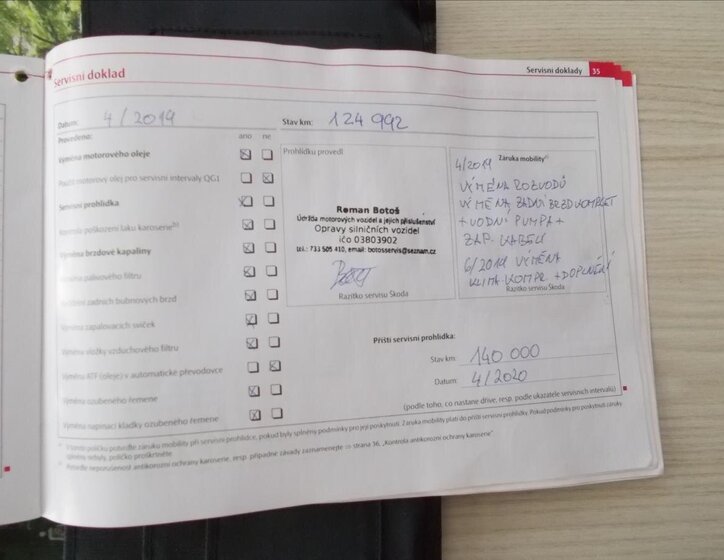 Servisní doklad
Servisní doklady 35
Datum: 4/2019
Stav km: 124 992
Provedeno:
ano ne
Výměna motorového oleje
Použit motorový olej pro servisní intervaly QG1
Servisní prohlídka
Kontrola poškození laku karoserie
Výměna brzdové kapaliny
Výměna palivového filtru
zadních bubnových brzd
Výměna zapalovacích svíček
Výměna vložky vzduchového filtru
Výměna ATF (oleje) v automatické převodovce
Výměna ozubeného řemene
Výměna napínací kladky ozubeného řemene
Prohlídku provedl
Roman Botoš
Údržba motorových vozidel a jejich příslušenství
Opravy silničních vozidel
ičo 03803902
tel.: 733 505 410, email: botosservis@seznam.cz
Razítko servisu Škoda
Záruka mobility
4/2019
VÝMĚNA ROZVODŮ
VÝMĚNA ZADNÍ BRZD KOMPLET
+ VODNÍ PUMPA +
ZAP. KABELY
6/2019 VÝMĚNA
KLIMA KOMPR. + DOPLNĚNÍ
Razítko servisu Škoda
Příští servisní prohlídka:
Stav km: 140 000
Datum: 4/2020
(podle toho, co nastane dříve, resp. podle ukazatele servisních intervalů)
V tomto políčku potvrďte záruku mobility při servisní prohlídce, pokud byly splněny podmínky pro její poskytnutí. Záruka mobility platí do příští servisní prohlídky. Pokud podmínky pro poskytnutí záruky
splněny nebyly, políčko proškrtněte
Potvrďte neporušenost antikorozní ochrany karoserie, resp. případné závady zaznamenejte ⇒ strana 36, „Kontrola antikorozní ochrany karoserie“